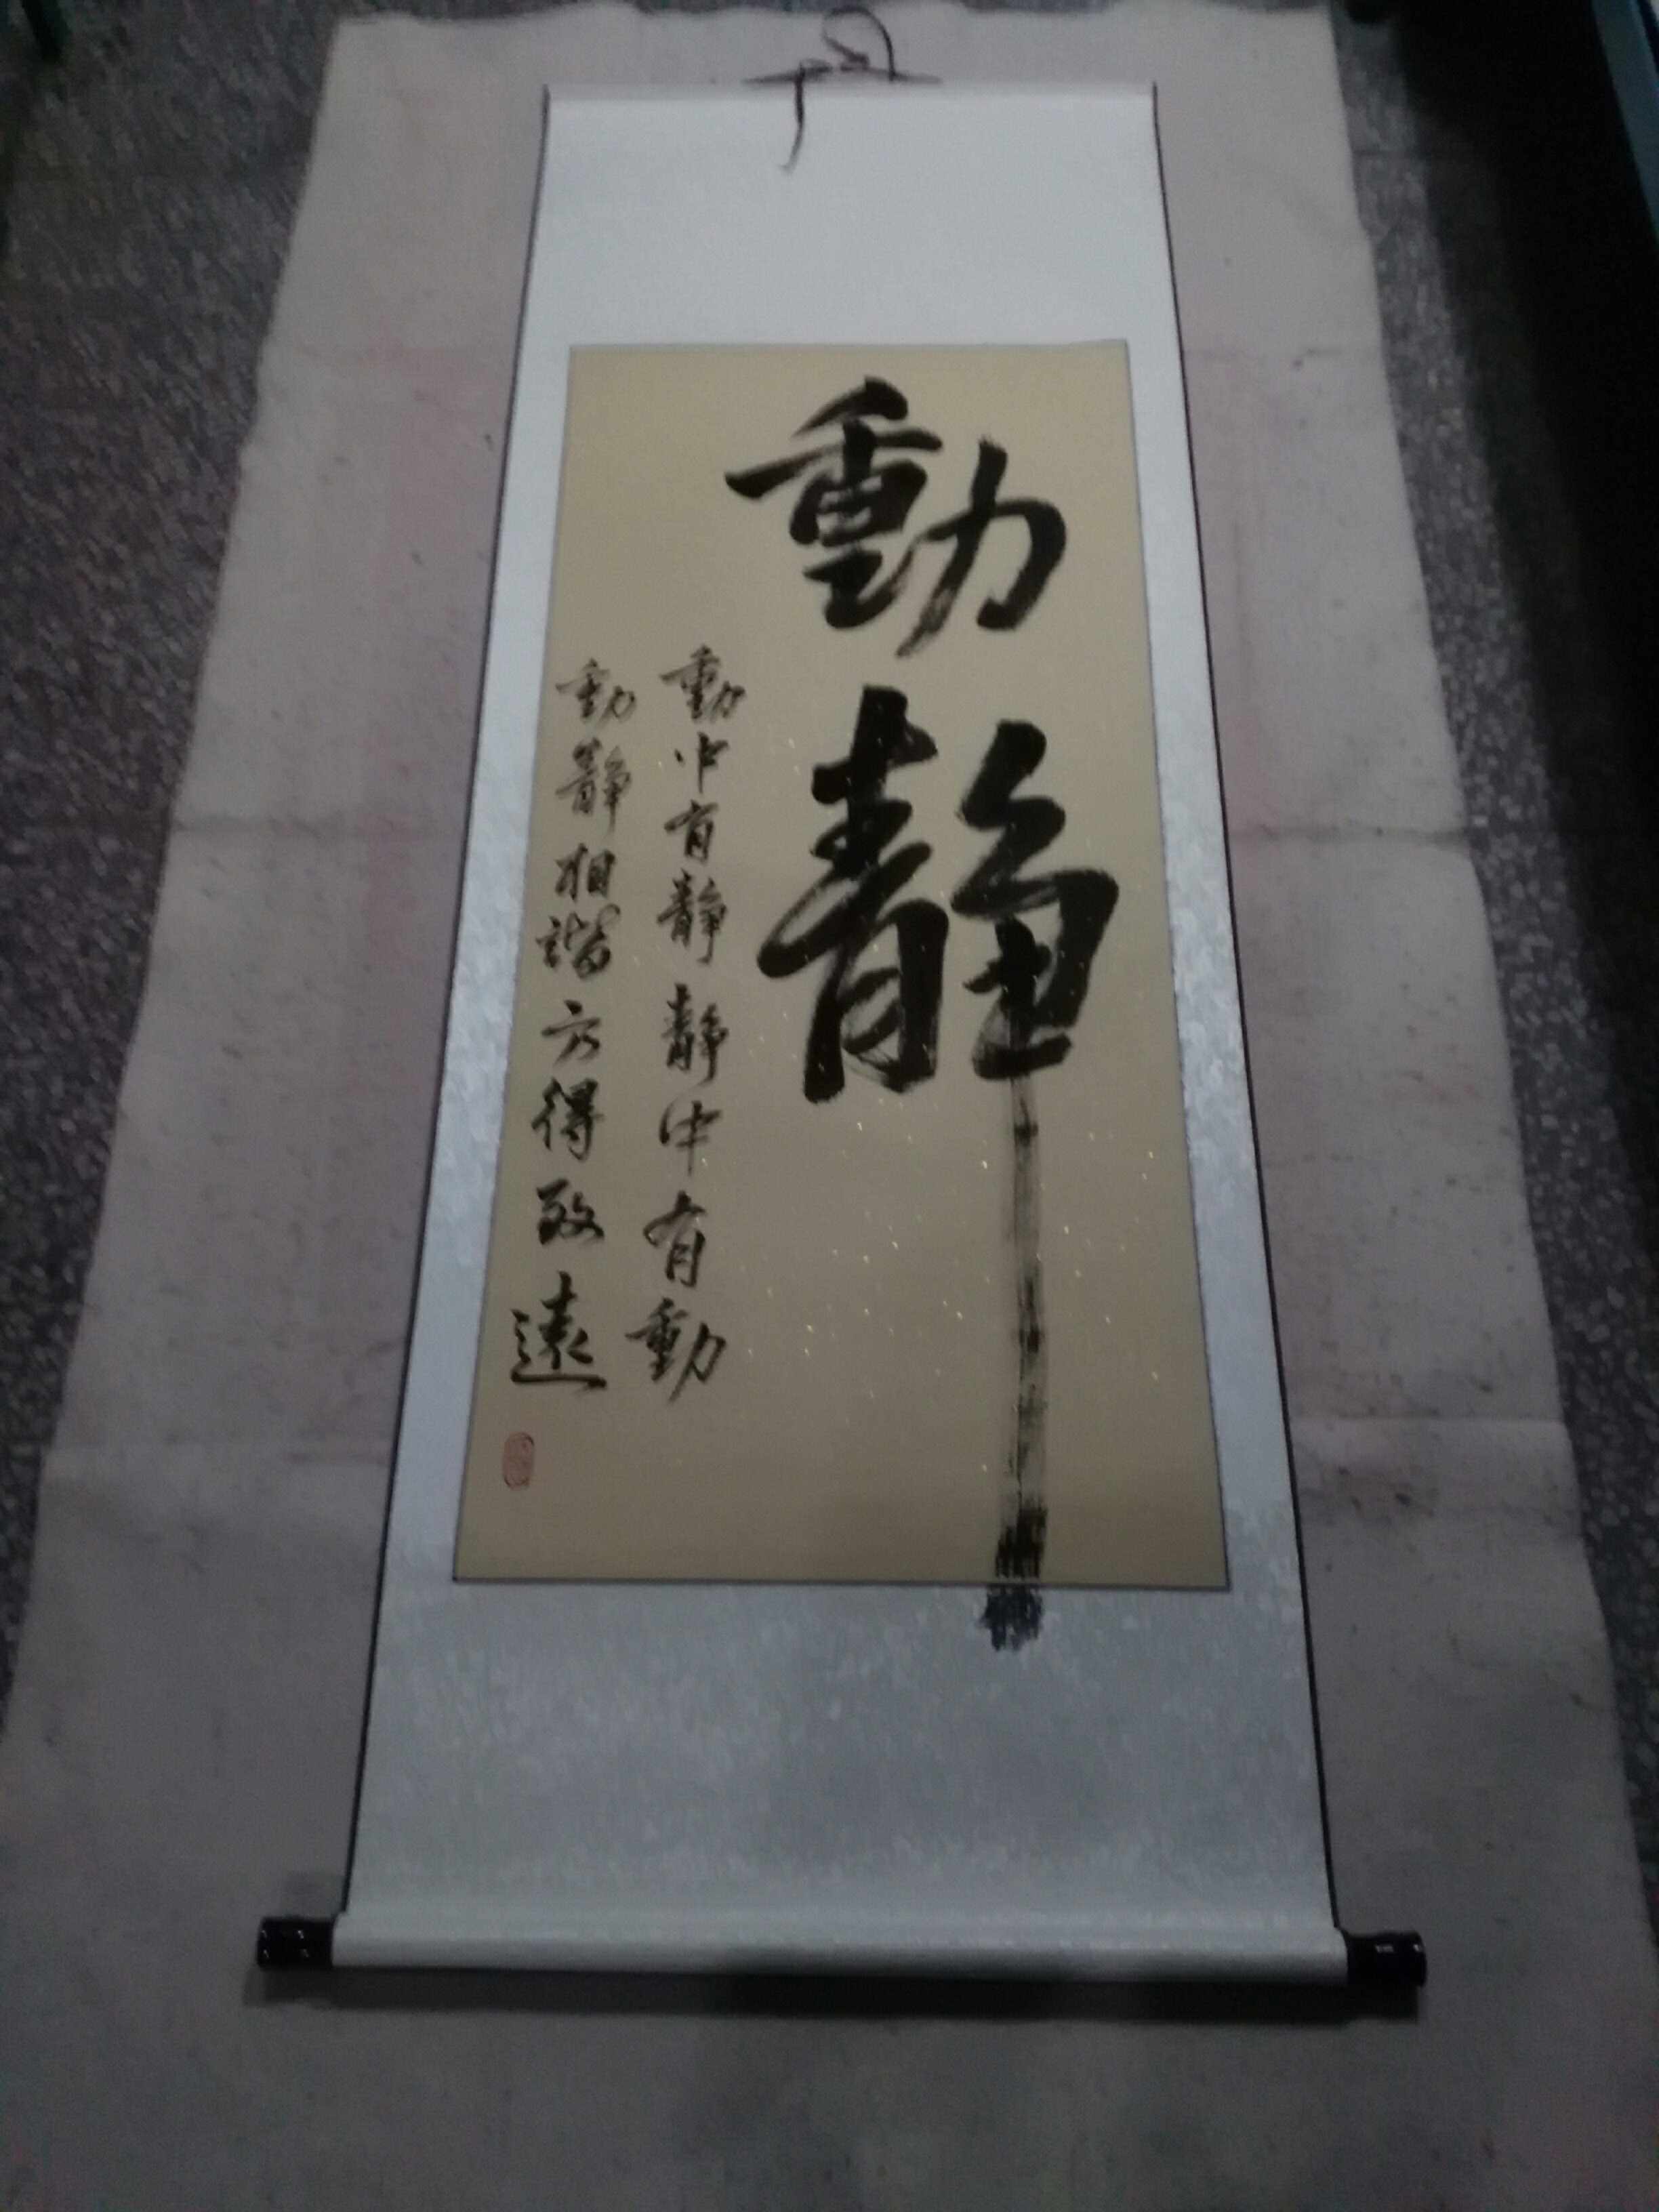 動靜
動中有靜靜中有動
動靜相諧方得致遠